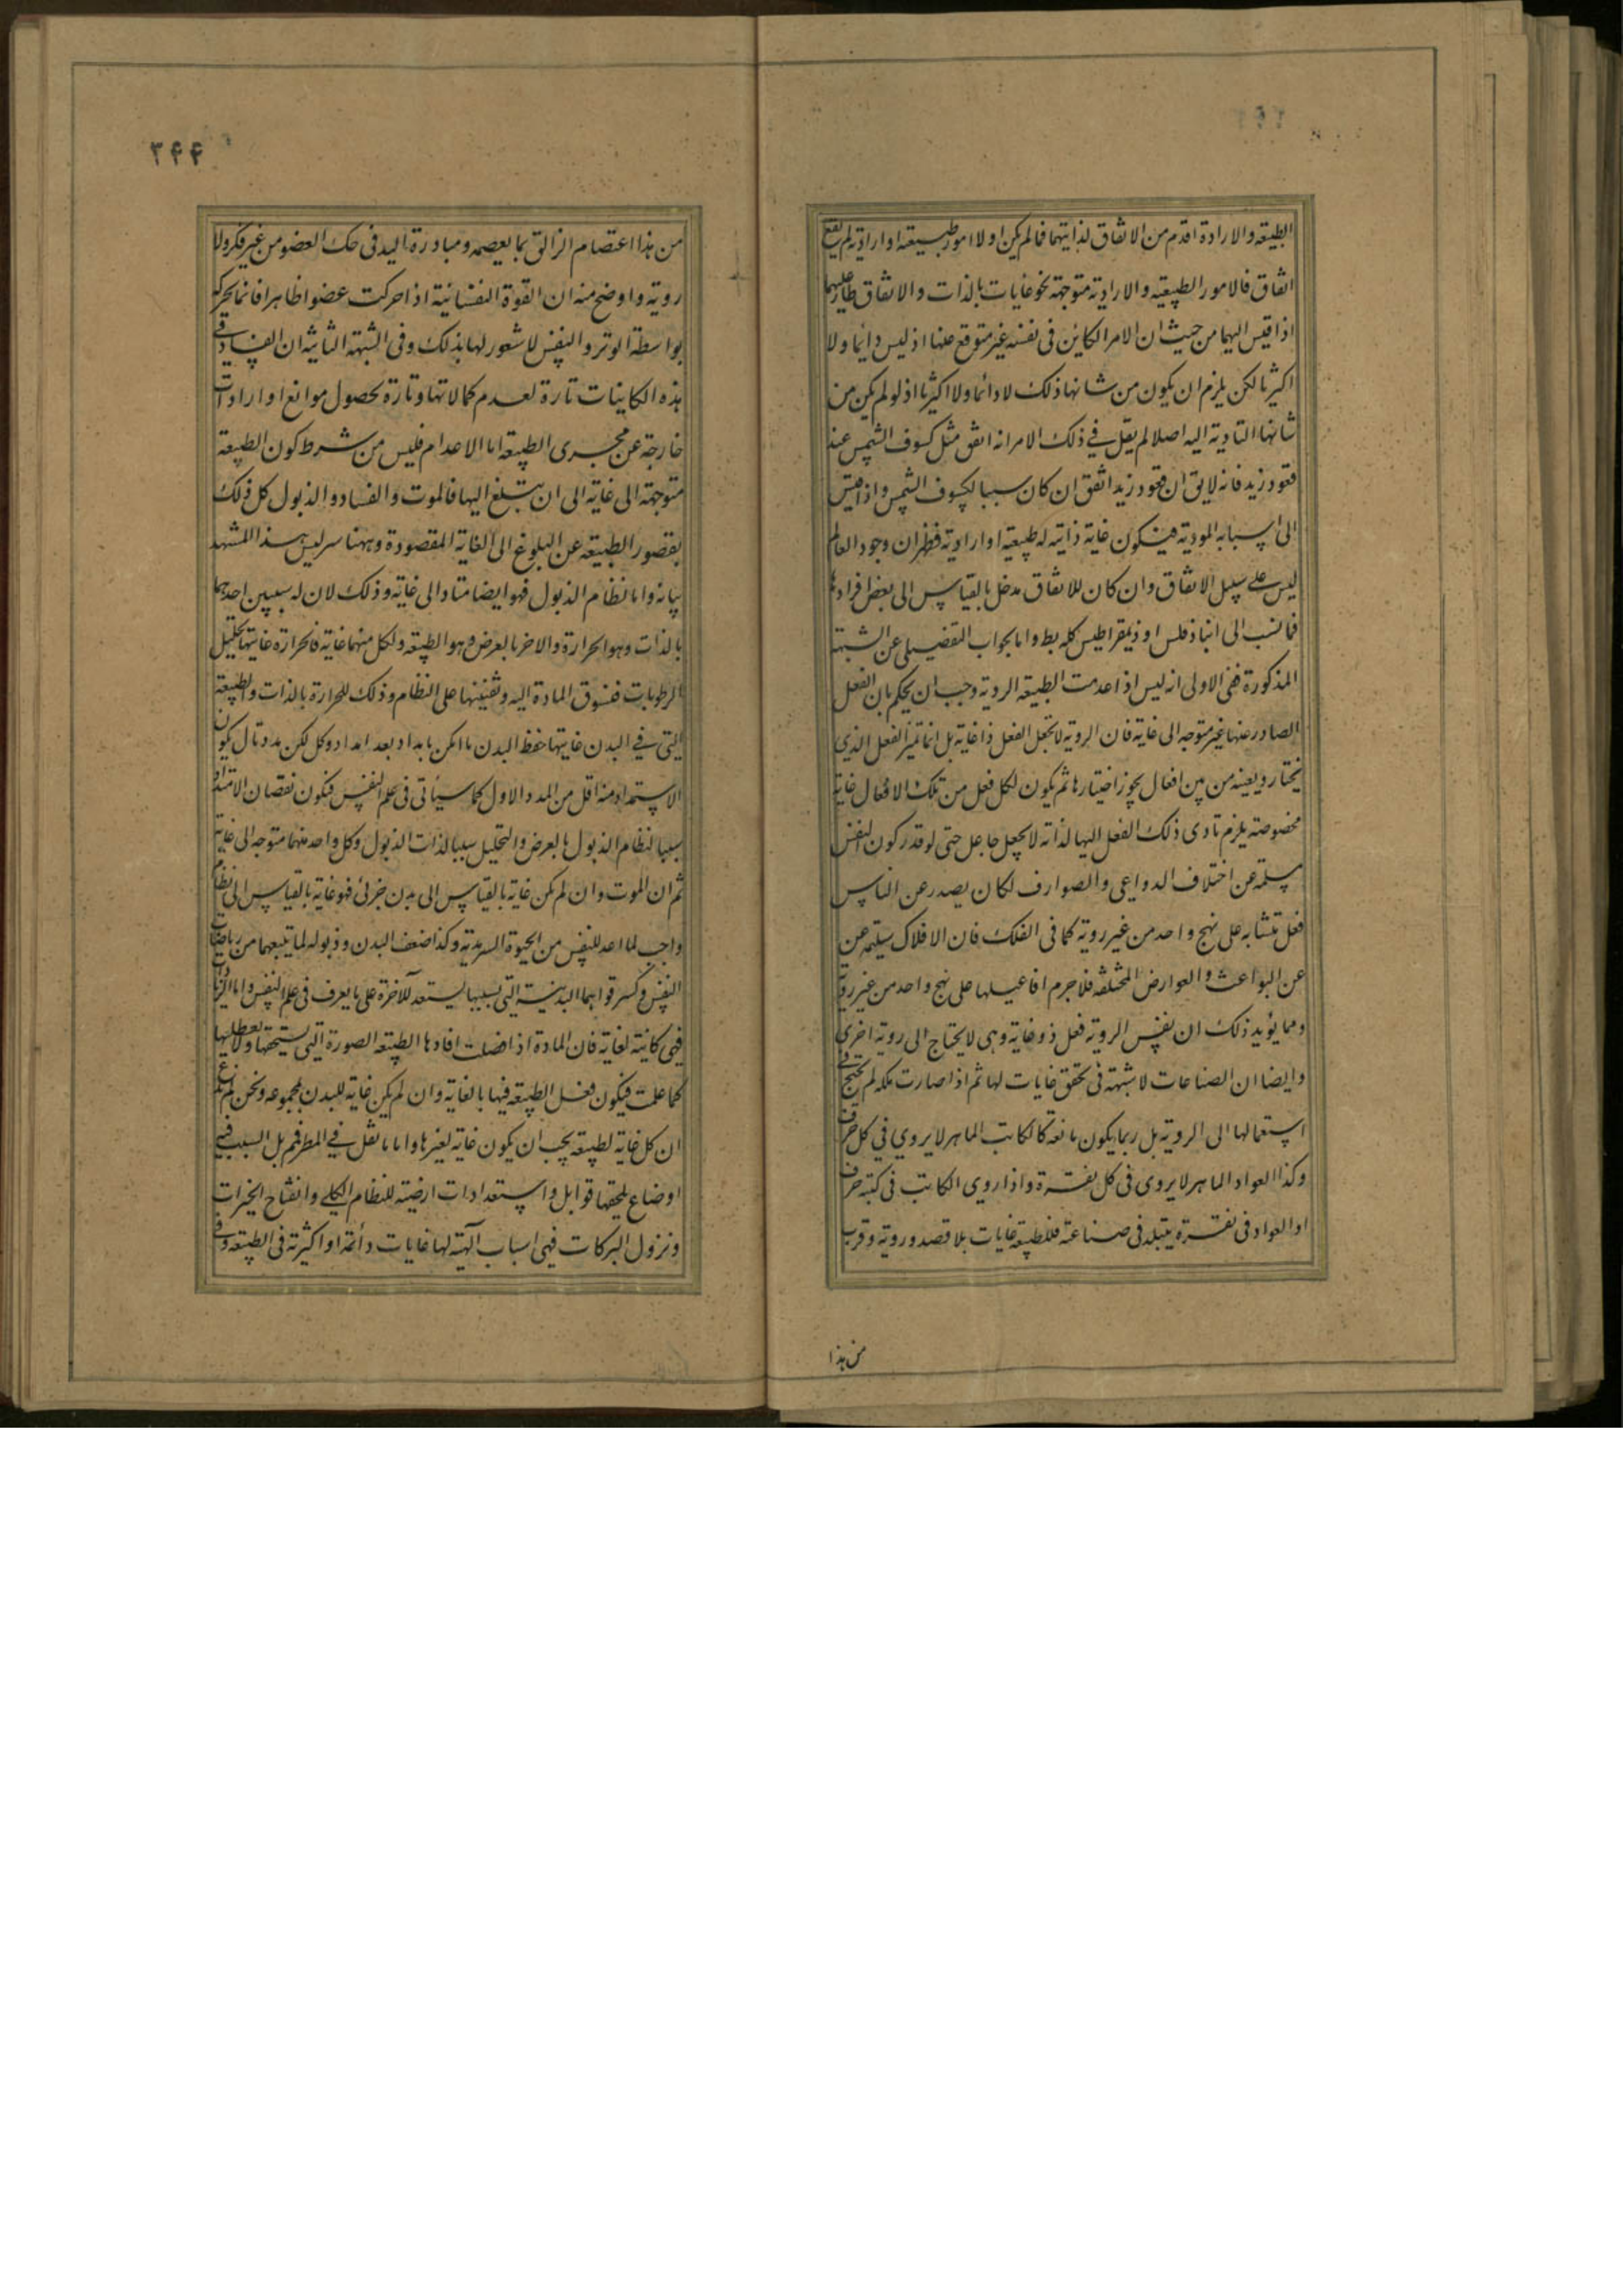 الطبيعة والارادة اقدم من الاتفاق لذاتيهما فما لم يكن اولا امور طبيعية او ارادية لم يقع
اتفاق فالامور الطبيعية والارادية متوجهة نحو غايات بالذات والاتفاق طار عليهما
اذا قيس اليهما من حيث ان الامر الكاين فى نفسه غير متوقع عنها اذ ليس دائما ولا
اكثريا لكن يلزم ان يكون من شانها ذلك لا دائما ولا اكثريا اذ لو لم يكن من
شانها التادية اليه اصلا لم يقل فى ذلك الامر انه اتفق مثل كسوف الشمس عند
قعود زيد فانه لا يق ان قعود زيد اتفق ان كان سببا لكسوف الشمس واذا قيس
الى اسبابه المودية فيكون غاية ذاتية له طبيعية او ارادية فظهر ان وجود العالم
ليس على سبيل الاتفاق وان كان للاتفاق مدخل بالقياس الى بعض افرادها
فما نسب الى انباذقلس او ذيمقراطيس كله بط واما الجواب التفصيلى عن الشبهة
المذكورة ففى الاولى انه ليس اذا عدمت الطبيعة الروية وجب ان يحكم بان الفعل
الصادر عنها غير متوجه الى غاية فان الروية لا تجعل الفعل ذا غاية بل انما تميز الفعل الذي
يختار ويعينه من بين افعال يجوز اختيارها ثم يكون لكل فعل من تلك الافعال غاية
مخصوصة يلزم تادى ذلك الفعل اليها لذاته لا بجعل جاعل حتى لو قدر كون النفس
مسلمة عن اختلاف الدواعى والصوارف لكان يصدر عن الناس
فعل متشابه على نهج واحد من غير روية كما فى الفلك فان الافلاك سليمة عن
عن البواعث والعوارض المختلفة فلا جرم افاعيلها على نهج واحد من غير روية
ومما يؤيد ذلك ان نفس الروية فعل ذو غاية وهى لا يحتاج الى روية اخرى
وايضا ان الصناعات لا شبهة فى تحقق غايات لها ثم اذا صارت ملكة لم يحتج فى
استعمالها الى الروية بل ربما يكون مانعة كالكاتب الماهر لا يروي في كل حرف
وكذا العواد الماهر لا يروى فى كل نقرة واذا روى الكاتب فى كتبه حرف
او العواد فى نقرة يتبلد فى صناعته فللطبيعة غايات بلا قصد وروية وقرب
من هذا
٣۴۴
من هذا اعتصام الزالق بما يعصمه ومبادرة اليد فى حك العضو من غير فكر ولا
روية واوضح منه ان القوة النفسانية اذا حركت عضوا ظاهرا فانما تحركه
بواسطة الوتر والنفس لا شعور لها بذلك وفى الشبهة الثانية ان الفساد فى
هذه الكاينات تارة لعدم كمالاتها وتارة لحصول موانع او ارادات
خارجة عن مجرى الطبيعة اما الاعدام فليس من شرط كون الطبيعة
متوجهة الى غاية الى ان يبلغ اليها فالموت والفساد والذبول كل ذلك
بقصور الطبيعة عن البلوغ الى الغاية المقصودة وههنا سر ليس هذا المشهد
بيانه واما نظام الذبول فهو ايضا متاد الى غاية وذلك لان له سببين احدهما
بالذات وهو الحرارة والاخر بالعرض وهو الطبيعة ولكل منهما غاية فالحرارة غايتها تحليل
الرطوبات فتسوق المادة اليه وتفنيها على النظام وذلك للحرارة بالذات والطبيعة
التى فى البدن غايتها حفظ البدن ما امكن بامداد بعد امداد وكل لكن مدد تال يكون
الاستمداد منه اقل من المدد الاول كما سياتى فى علم النفس فيكون نقصان الامداد
سببا لنظام الذبول بالعرض والتحليل سببا لذات الذبول وكل واحد منهما متوجه الى غاية
ثم ان الموت وان لم يكن غاية بالقياس الى بدن جزئى فهو غاية بالقياس الى نظام
واجب لما اعد للنفس من الحيوة السرمدية وكذا ضعف البدن وذبوله لما يتبعهما من رياضات
النفس وكسر قواها البدنية التى بسببها يستعد للاخرة على ما يعرف فى علم النفس واما الزيادات
فهى كاينة لغاية فان المادة اذا فضلت افادها الطبيعة الصورة التى يستحقها ولا يعطلها
كما علمت فيكون فعل الطبيعة فيها بالغاية وان لم يكن غاية للبدن بمجموعه ونحن لم ندع
ان كل غاية لطبيعة يجب ان يكون غاية لغيرها واما ما نقل فى المطر فمم بل السبب فيه
اوضاع يلحقها قوابل واستعدادات ارضية للنظام الكلى وانفتاح الخيرات
ونزول البركات فهى اسباب الهية لها غايات دائمة او اكثرية فى الطبيعة وفى